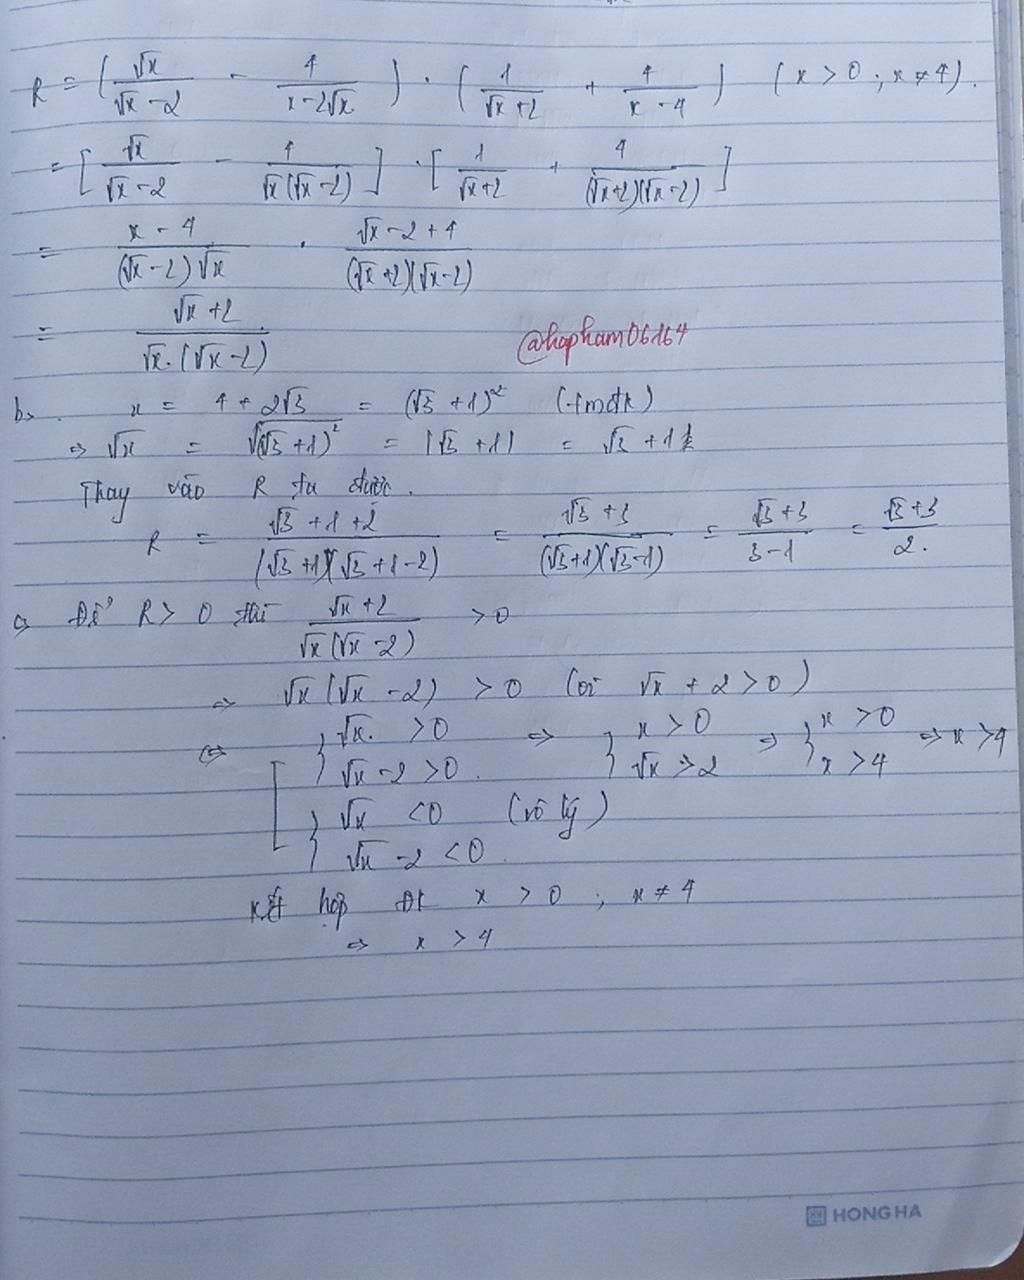 R = ( √x / (√x - 2) - 4 / (x - 2√x) ) . ( 1 / (√x + 2) + 4 / (x - 4) ) ( x > 0 ; x ≠ 4 ).
= [ √x / (√x - 2) - 4 / (√x(√x - 2)) ] . [ 1 / (√x + 2) + 4 / ((√x + 2)(√x - 2)) ]
= (x - 4) / ((√x - 2)√x) . (√x - 2 + 4) / ((√x + 2)(√x - 2))
= (√x + 2) / (√x.(√x - 2))
@hapham06164
b, x = 4 + 2√3 = (√3 + 1)² (tmđk)
⇒ √x = √((√3 + 1)²) = |√3 + 1| = √3 + 1
Thay vào R ta được.
R = (√3 + 1 + 2) / ((√3 + 1)(√3 + 1 - 2)) = (√3 + 3) / ((√3 + 1)(√3 - 1)) = (√3 + 3) / (3 - 1) = (√3 + 3) / 2.
c, Để R > 0 thì (√x + 2) / (√x(√x - 2)) > 0
⇒ √x(√x - 2) > 0 (vì √x + 2 > 0)
⇔ [ { √x > 0 ⇒ { x > 0 ⇒ { x > 0 ⇒ x > 4
√x - 2 > 0 √x > 2 x > 4
{ √x < 0 (vô lý)
√x - 2 < 0
Kết hợp ĐK x > 0 ; x ≠ 4
⇒ x > 4
HONG HA